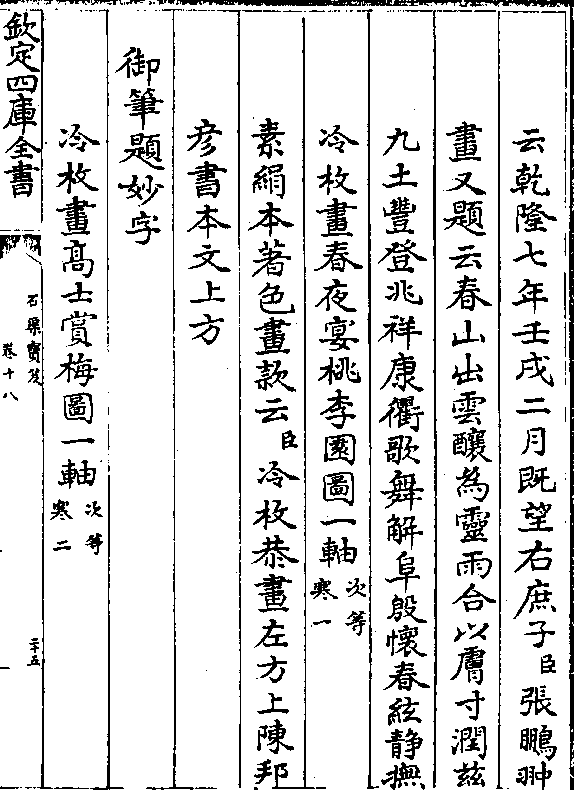 云乾隆七年壬戌二月既望右庶子臣張鵬翀
畫又題云春山出雲釀為靈雨合以膚寸潤兹
九土豐登兆祥康衢歌舞解阜殷懷春絃静撫
冷枚畫春夜宴桃李園圖一軸次等寒一
素絹本著色畫款云臣冷枚恭畫左方上陳邦
彦書本文上方
御筆題妙字
冷枚畫高士賞梅圖一軸次等寒二
欽定四庫全書
石渠寳笈
卷十八
二十五